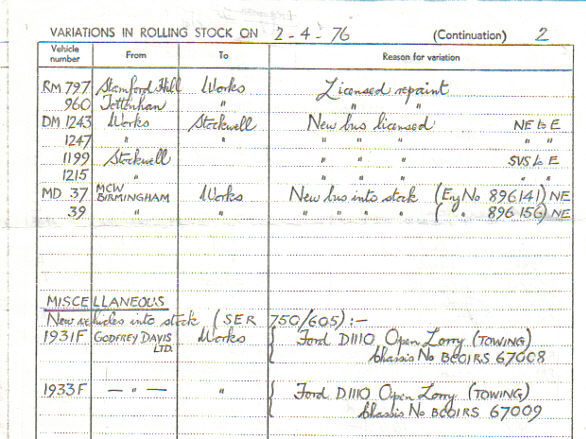 VARIATIONS IN ROLLING STOCK ON 2-4-76 (Continuation) 2
Vehicle number From To Reason for variation
RM 797 Stamford Hill Works Licensed repaint
960 Tottenham " " "
DM 1243 Works Stockwell New bus licensed NE to E
1247 " " " " " " "
1199 Stockwell " " " SVS to E
1215 " " " " " "
MD 37 MCW BIRMINGHAM Works New bus into stock (Eng No 896141) NE
39 " " " " " " ( " 896156) NE
MISCELLANEOUS
New vehicles into stock (SER 750/605) :-
1931F GODFREY DAVIS LTD. Works { Ford D1110 Open Lorry (TOWING)
Chassis No BC01RS 67008
1933F — " — " { Ford D1110 Open Lorry (TOWING)
Chassis No BC01RS 67009